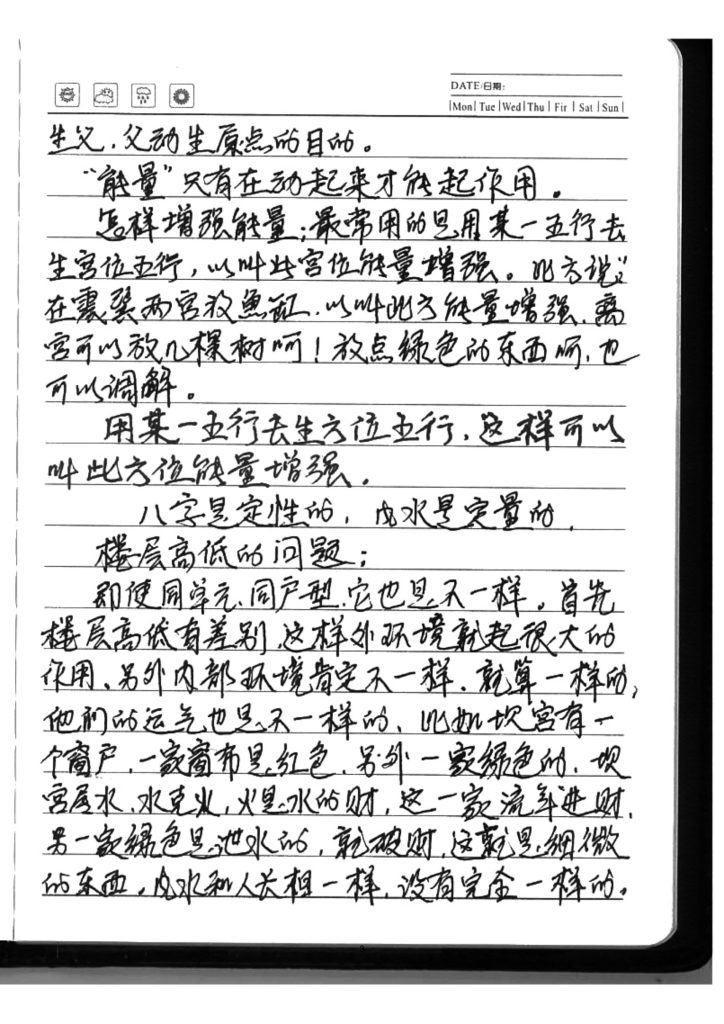 DATE/日期:
Mon Tue Wed Thu Fir Sat Sun
生父,父动生原点的目的。
“能量”只有在动起来才能起作用。
怎样增强能量;最常用的是用某一五行去
生宫位五行,以叫此宫位能量增强。比方说:
在震巽两宫放鱼缸,以叫此方能量增强,离
宫可以放几棵树呵!放点绿色的东西呵,也
可以调解。
用某一五行去生方位五行,这样可以
叫此方位能量增强。
八字是定性的,风水是定量的,
楼层高低的问题;
即使同单元、同户型,它也是不一样。首先
楼层高低有差别,这样外环境就起很大的
作用、另外内部环境肯定不一样,就算一样的,
他们的运气也是不一样的、比如坎宫有一
个窗户,一家窗布是红色,另外一家绿色的,坎
宫属水,水克火,火是水的财,这一家流年进财,
另一家绿色是泄水的,就破财,这就是细微
的东西,风水和人长相一样,没有完全一样的。